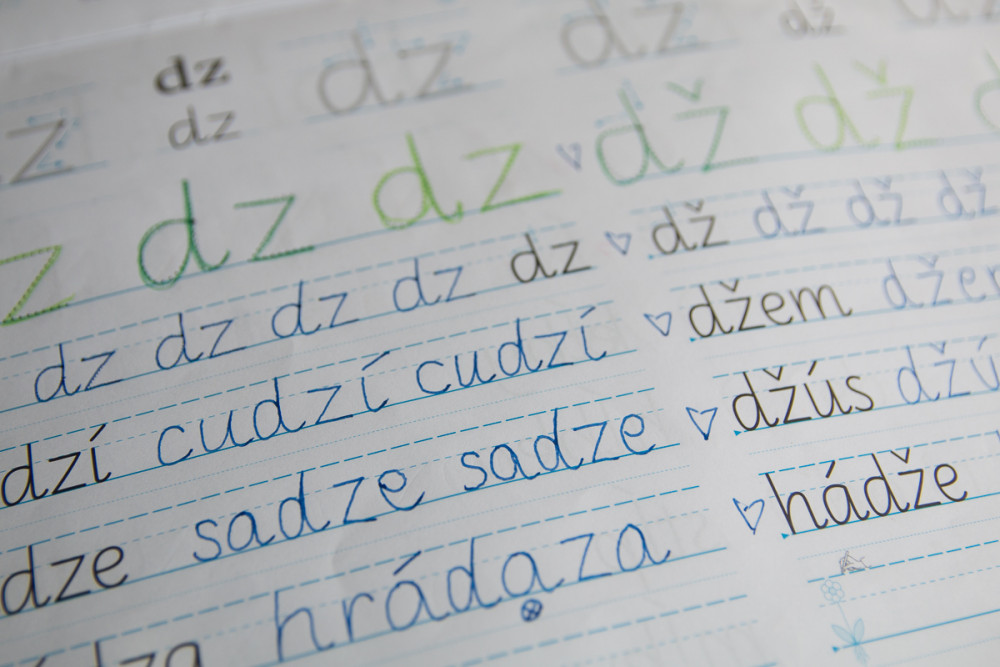 dz
z dz dz dz dž
z dz dz dž dž
dz dz dz dz dz dž dž dž dž
dzí cudzí cudzí džem džem
dze sadze sadze džús džú
dza hrádaza hádže